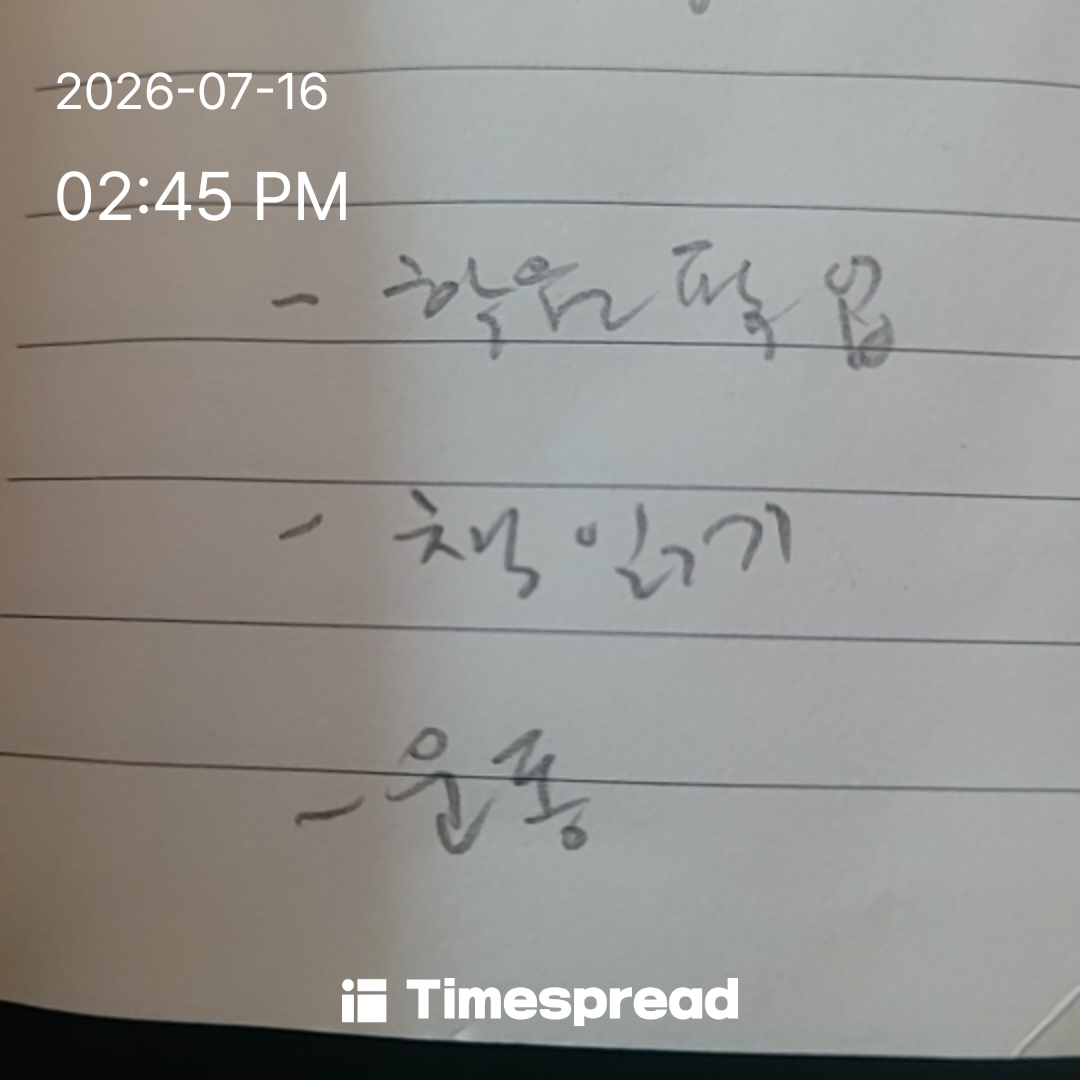 2026-07-16
02:45 PM
- 학원
- 책 읽기
- 운동
Timespread